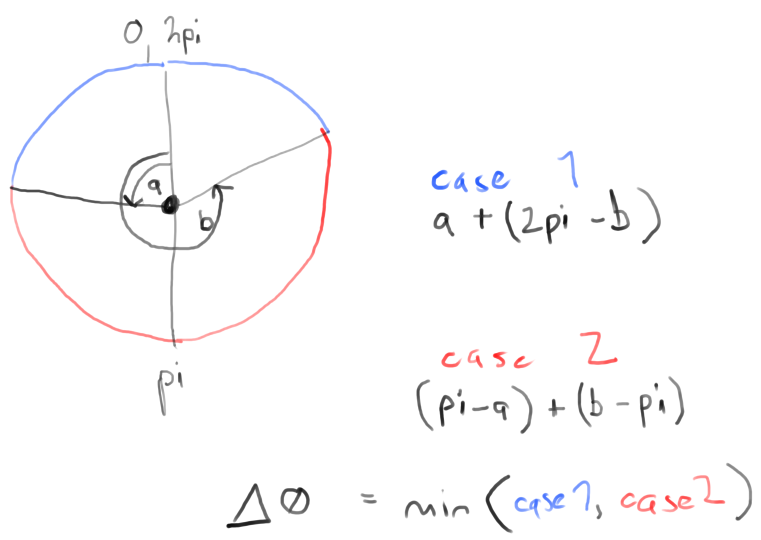 0 2pi
a
b
pi
case 1
a + (2pi - b)
case 2
(pi-a) + (b-pi)
Δ∅ = min (case1, case2)